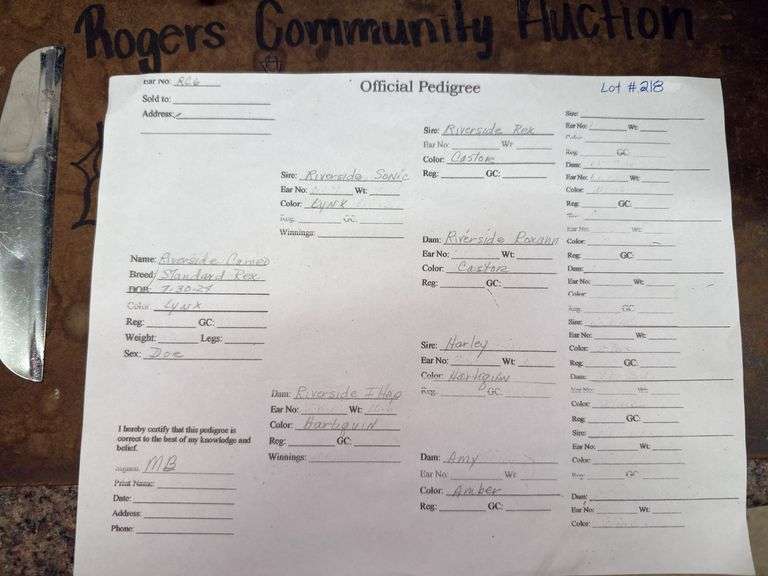 Rogers Community Auction
Official Pedigree
Lot #218
Ear No: RC6
Sold to:
Address:
Name: Riverside Cameo
Breed: Standard Rex
DOB: 7-30-24
Color: Lynx
Reg: GC:
Weight: Legs:
Sex: Doe
I hereby certify that this pedigree is
correct to the best of my knowledge and
belief.
Signed: MB
Print Name:
Date:
Address:
Phone:
Sire: Riverside Sonic
Ear No: Wt:
Color: Lynx
Reg: GC:
Winnings:
Dam: Riverside IHop
Ear No: Wt:
Color: Harliquin
Reg: GC:
Winnings:
Sire: Riverside Rex
Ear No: Wt:
Color: Castore
Reg: GC:
Dam: Riverside Roxann
Ear No: Wt:
Color: Castore
Reg: GC:
Sire: Harley
Ear No: Wt:
Color: Harliquin
Reg: GC:
Dam: Amy
Ear No: Wt:
Color: Amber
Reg: GC:
Sire:
Ear No: Wt:
Color:
Reg: GC:
Dam:
Ear No: Wt:
Color:
Reg: GC:
Sire:
Ear No: Wt:
Color:
Reg: GC:
Dam:
Ear No: Wt:
Color:
Reg: GC:
Sire:
Ear No: Wt:
Color:
Reg: GC:
Dam:
Ear No: Wt:
Color:
Reg: GC:
Sire:
Ear No: Wt:
Color:
Reg: GC:
Dam:
Ear No: Wt:
Color: